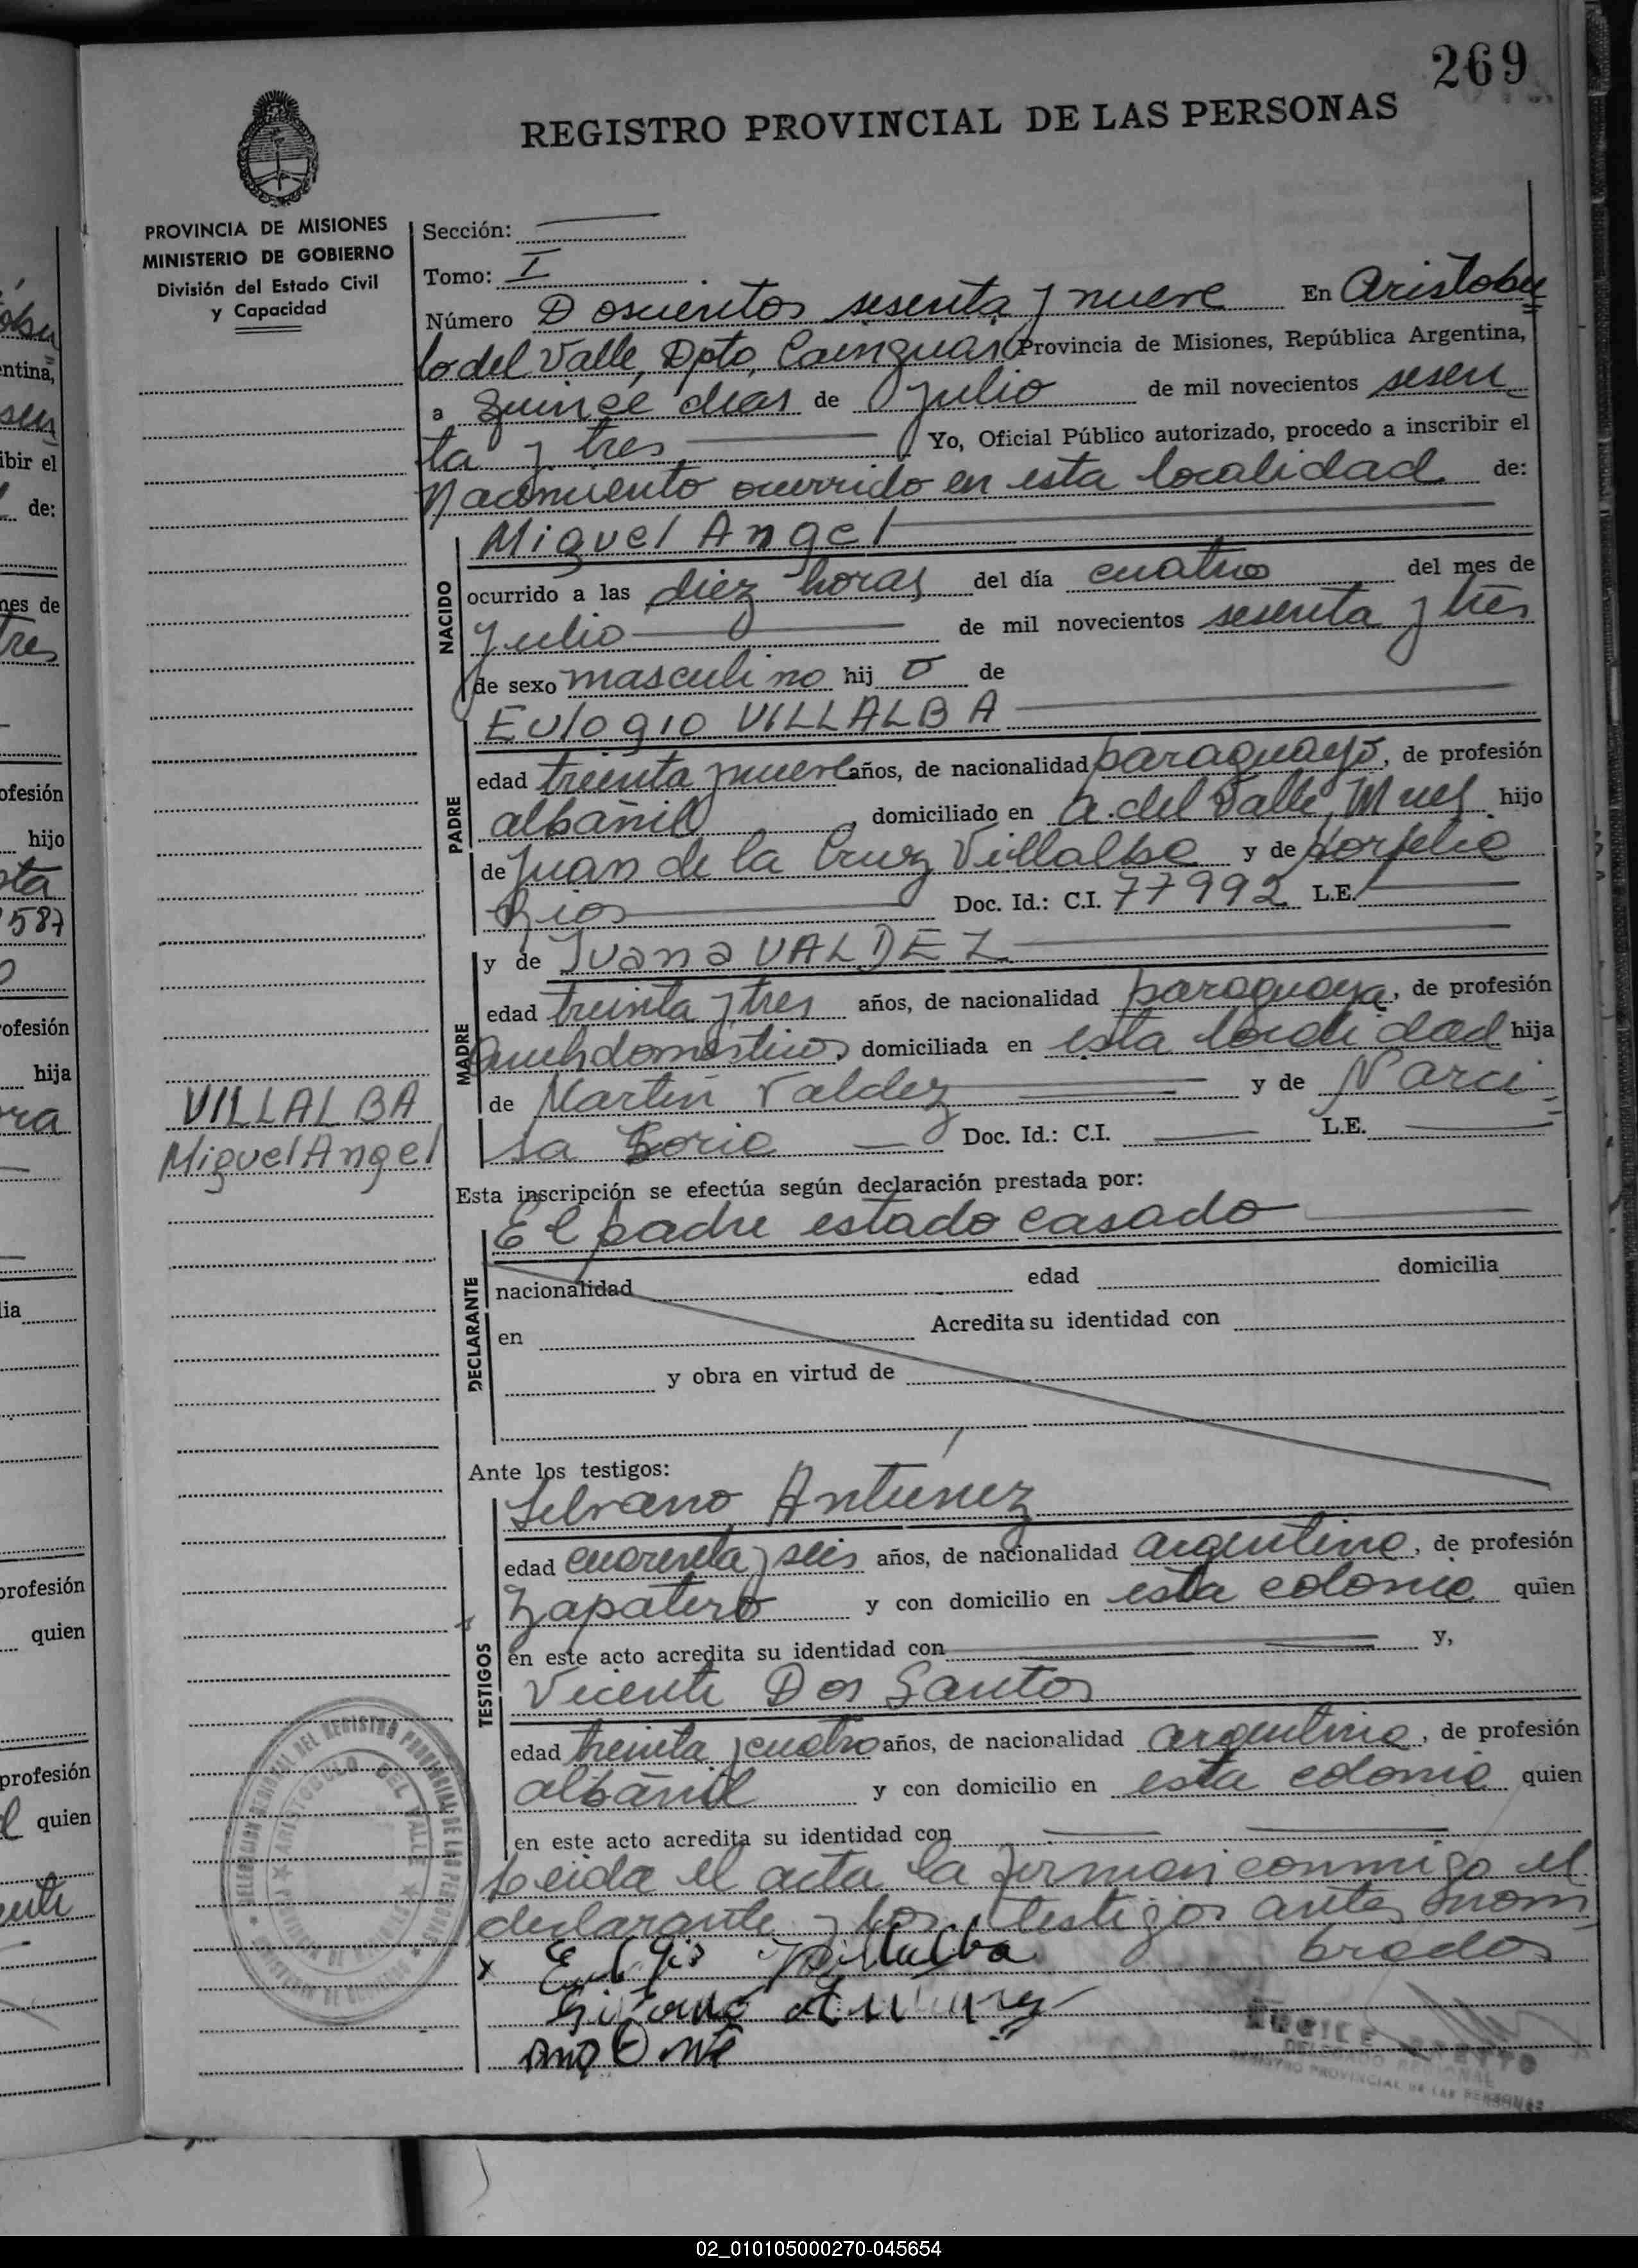 269
REGISTRO PROVINCIAL DE LAS PERSONAS
PROVINCIA DE MISIONES
MINISTERIO DE GOBIERNO
División del Estado Civil
y Capacidad
Sección:
Tomo: I
Número Doscientos sesenta y nueve En Aristobu
lo del Valle, Dpto, Cainguas Provincia de Misiones, República Argentina,
a quince días de julio de mil novecientos sesen
ta y tres Yo, Oficial Público autorizado, procedo a inscribir el
Nacimiento ocurrido en esta localidad de:
Miguel Angel
NACIDO
ocurrido a las diez horas del día cuatro del mes de
Julio de mil novecientos sesenta y tres
de sexo masculino hijo de
Eulogio VILLALBA
PADRE
edad treinta y nueve años, de nacionalidad paraguayo, de profesión
albañil, domiciliado en A. del Valle, Mnes hijo
de Juan de la Cruz Villalba y de
Rios Doc. Id.: C.I. 77992 L.E.
y de Juana VALDEZ
MADRE
edad treinta y tres años, de nacionalidad paraguaya, de profesión
domésticos domiciliada en esta localidad hija
de Martin Valdez y de Narci
sa Doc. Id.: C.I. L.E.
VILLALBA
Miguel Angel
Esta inscripción se efectúa según declaración prestada por:
El padre estado casado
DECLARANTE
nacionalidad edad domicilia
en Acredita su identidad con
y obra en virtud de
Ante los testigos:
Silvano Antunez
TESTIGOS
edad cuarenta y seis años, de nacionalidad argentino, de profesión
Zapatero y con domicilio en esta colonia quien
en este acto acredita su identidad con y,
Vicente Dos Santos
edad treinta y cuatro años, de nacionalidad argentino, de profesión
albañil y con domicilio en esta colonia quien
en este acto acredita su identidad con
Leida el acta la firman conmigo el
declarante y los testigos antes nom
brados
x Eulogio Villalba
DELEGADO REGIONAL
REGISTRO PROVINCIAL DE LAS PERSONAS
ARISTOBULO DEL VALLE
ntina,
ibir el
de:
mes de
tres
ofesión
hijo
587
ofesión
hija
lia
profesión
quien
profesión
quien
02_010105000270-045654